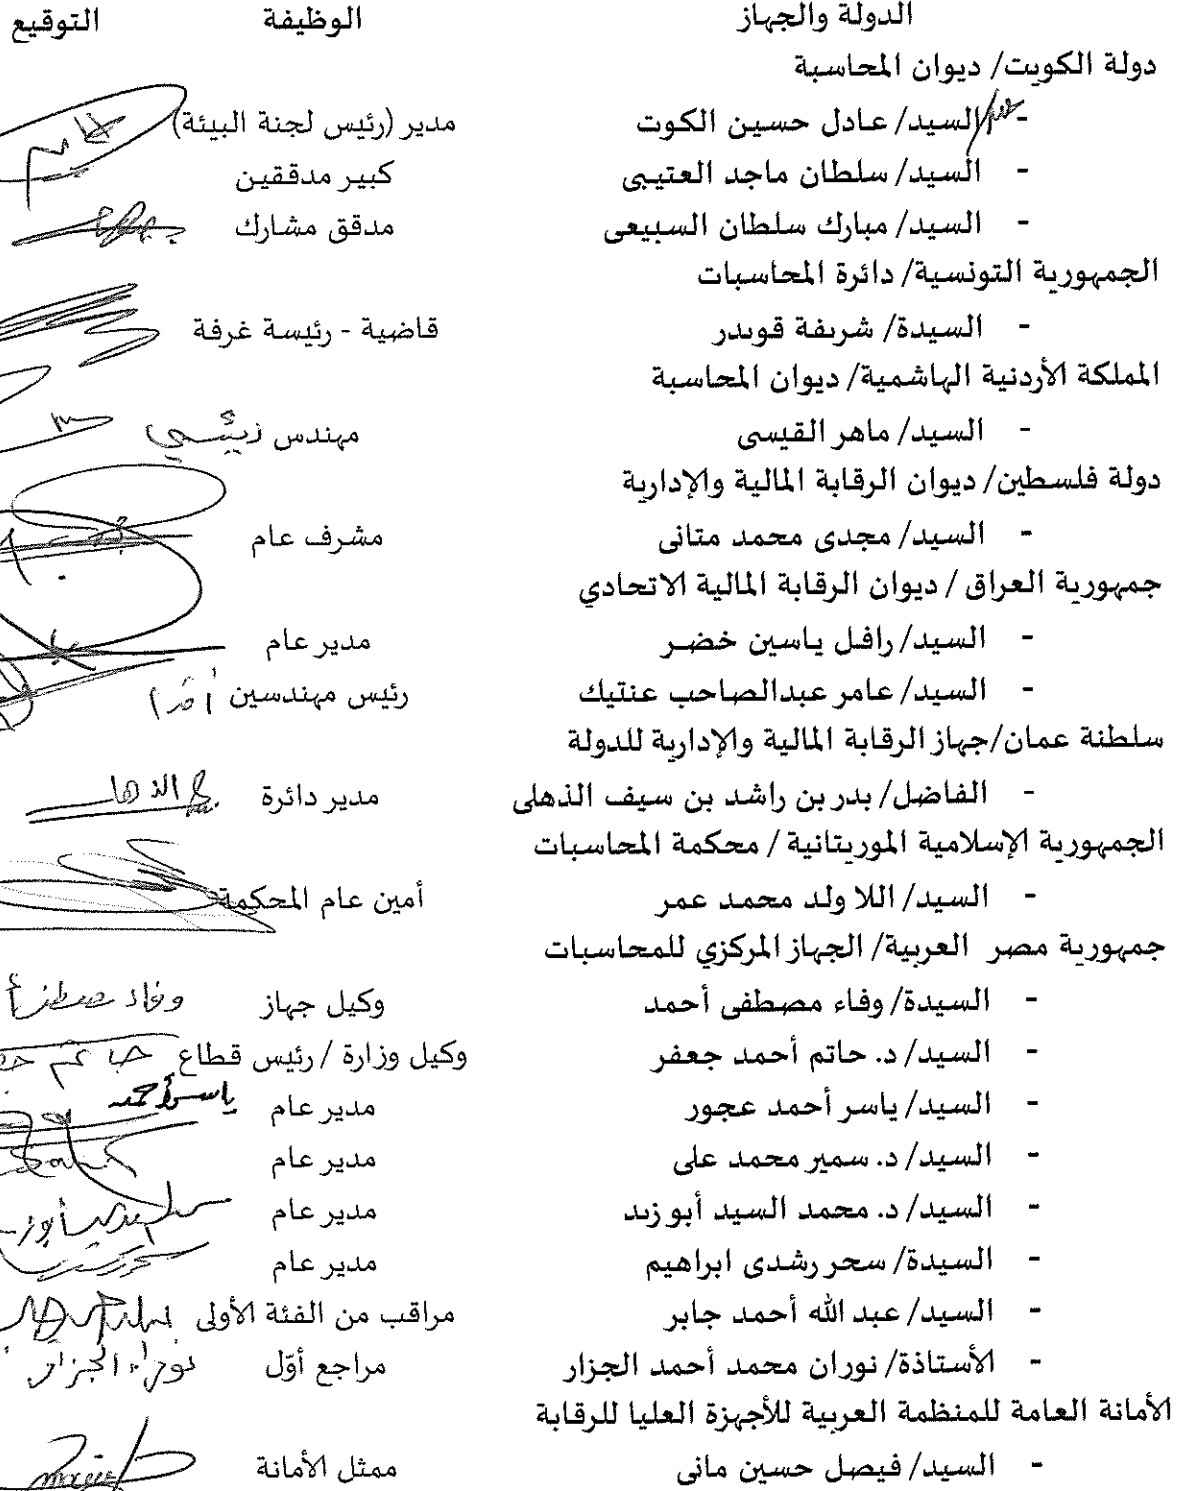 الدولة والجهاز الوظيفة التوقيع
دولة الكويت/ ديوان المحاسبة
- السيد/ عادل حسين الكوت مدير (رئيس لجنة البيئة)
- السيد/ سلطان ماجد العتيبى كبير مدققين
- السيد/ مبارك سلطان السبيعى مدقق مشارك
الجمهورية التونسية/ دائرة المحاسبات
- السيدة/ شريفة قويدر قاضية - رئيسة غرفة
المملكة الأردنية الهاشمية/ ديوان المحاسبة
- السيد/ ماهر القيسى مهندس
دولة فلسطين/ ديوان الرقابة المالية والإدارية
- السيد/ مجدى محمد متانى مشرف عام
جمهورية العراق / ديوان الرقابة المالية الاتحادي
- السيد/ رافل ياسين خضر مدير عام
- السيد/ عامر عبدالصاحب عنتيك رئيس مهندسين
سلطنة عمان/جهاز الرقابة المالية والإدارية للدولة
- الفاضل/ بدر بن راشد بن سيف الذهلى مدير دائرة
الجمهورية الإسلامية الموريتانية / محكمة المحاسبات
- السيد/ اللا ولد محمد عمر أمين عام المحكمة
جمهورية مصر العربية/ الجهاز المركزي للمحاسبات
- السيدة/ وفاء مصطفى أحمد وكيل جهاز وفاء مصطفى
- السيد/ د. حاتم أحمد جعفر وكيل وزارة / رئيس قطاع حاتم
- السيد/ ياسر أحمد عجور مدير عام ياسر أحمد
- السيد/ د. سمير محمد على مدير عام
- السيد/ د. محمد السيد أبو زيد مدير عام
- السيدة/ سحر رشدى ابراهيم مدير عام
- السيد/ عبد الله أحمد جابر مراقب من الفئة الأولى
- الأستاذة/ نوران محمد أحمد الجزار مراجع أوّل نوران الجزار
الأمانة العامة للمنظمة العربية للأجهزة العليا للرقابة
- السيد/ فيصل حسين مانى ممثل الأمانة